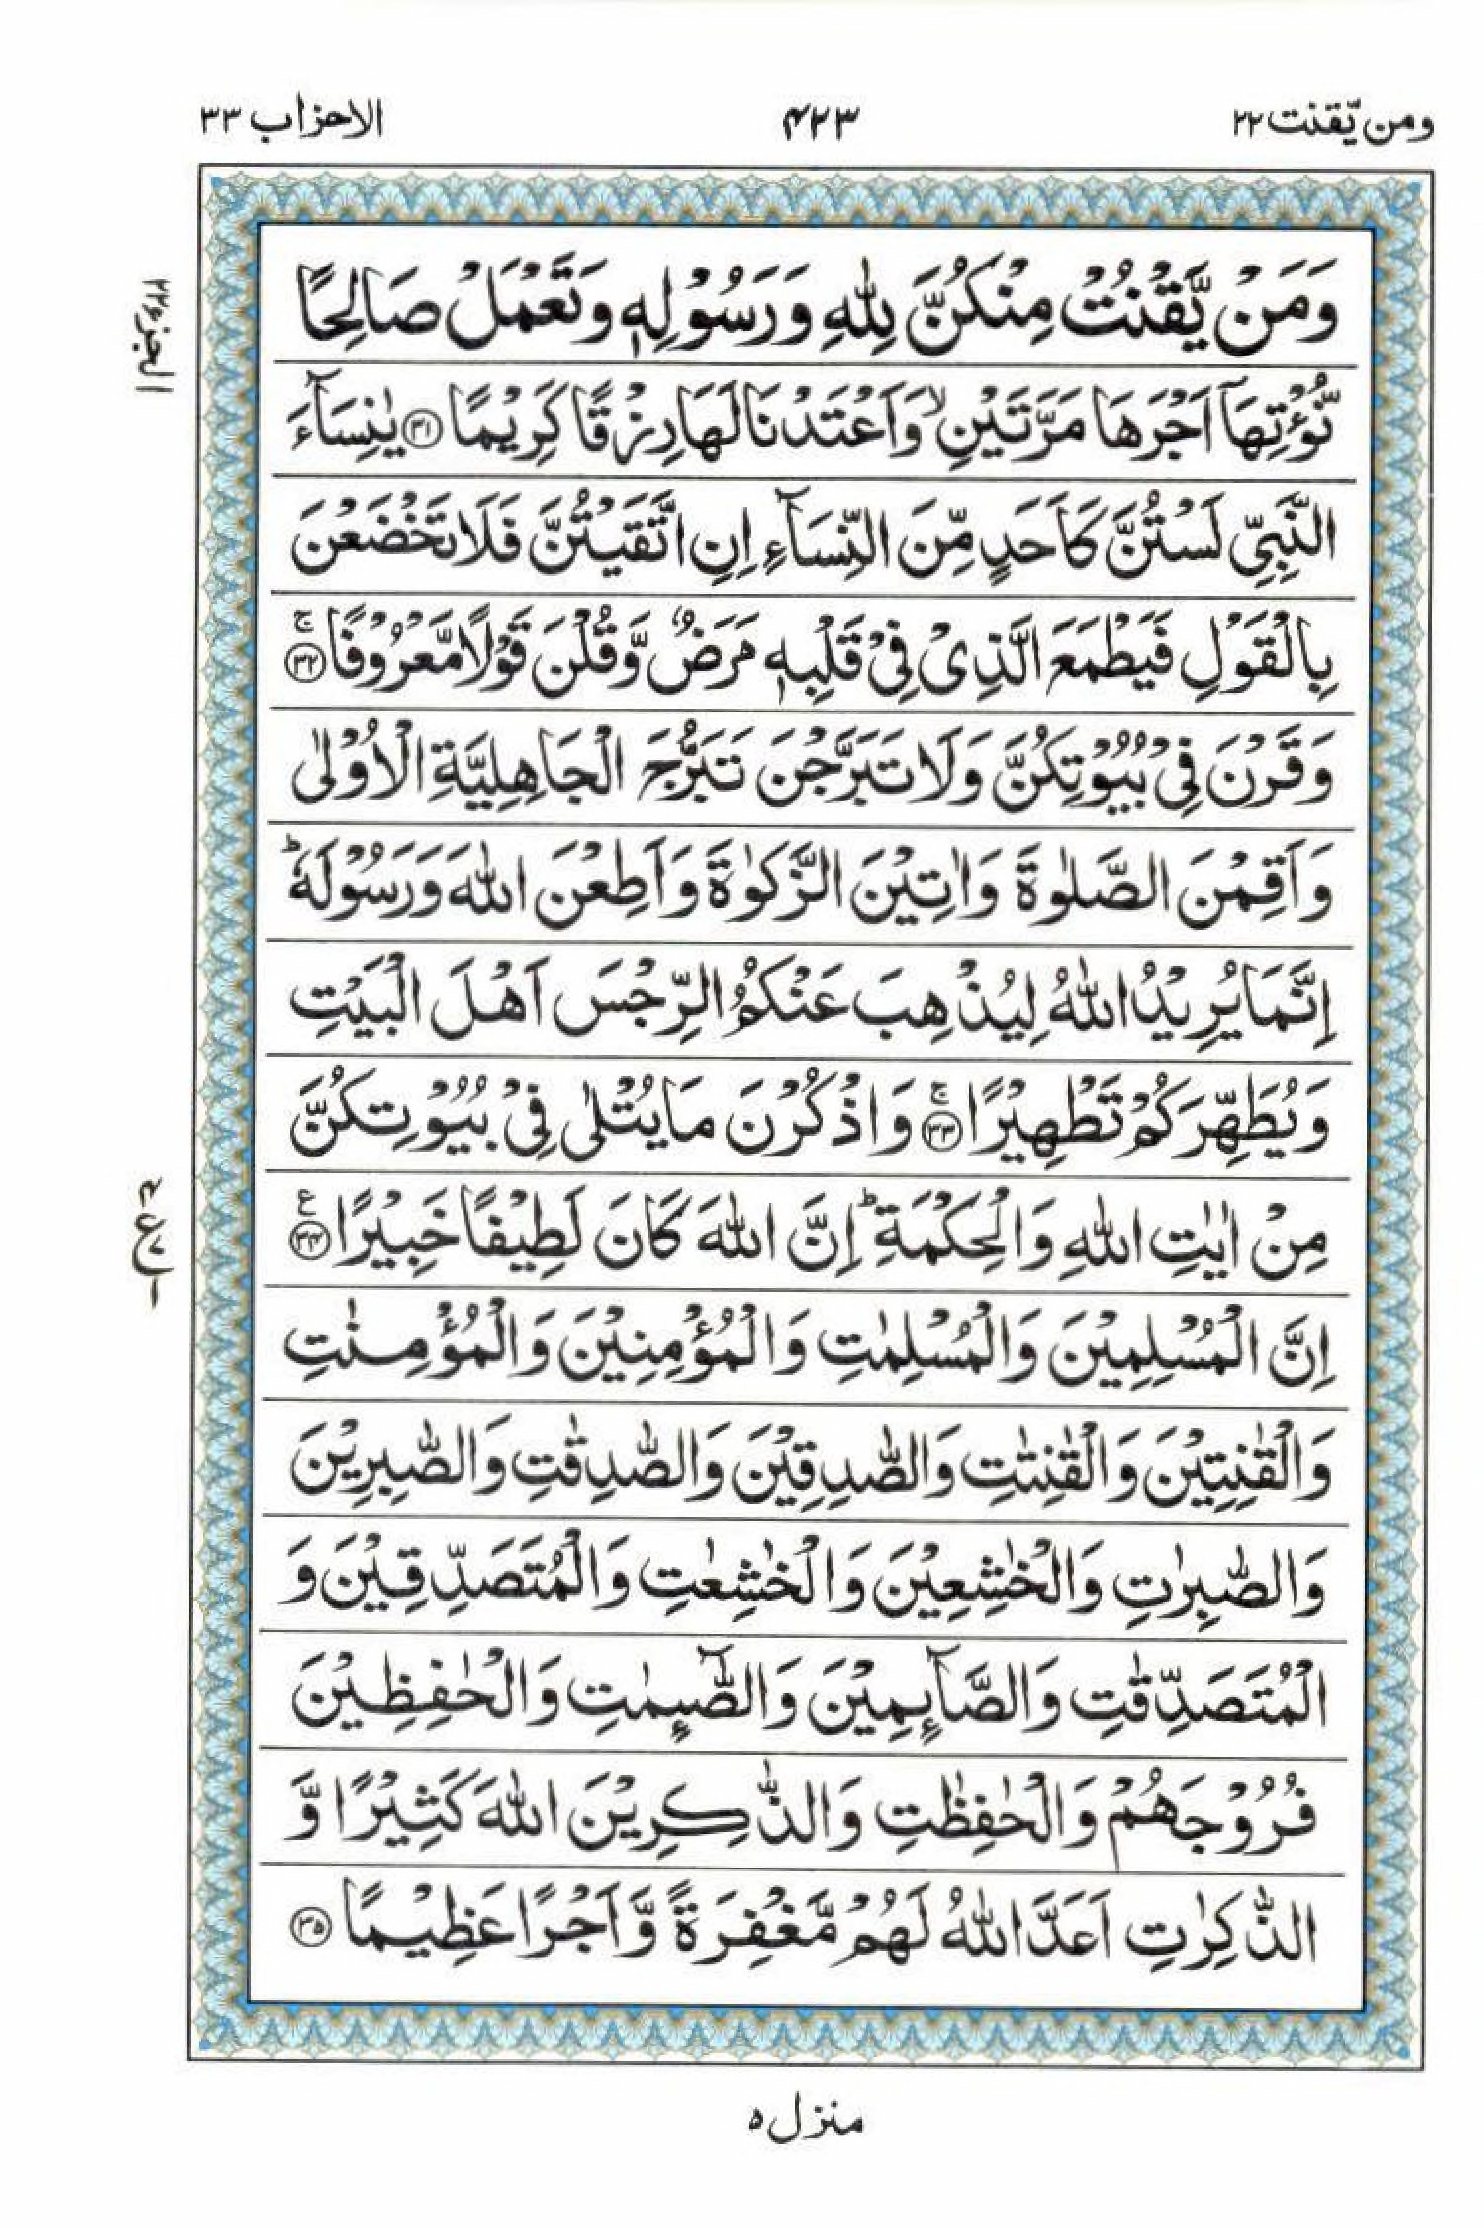 ومن يّقنت ٢٢
٤٢٣
الاحزاب ٣٣
الجزء ٢٢
وَمَنْ يَّقْنُتْ مِنْكُنَّ لِلّٰهِ وَرَسُوْلِهٖ وَتَعْمَلْ صَالِحًا
نُّؤْتِهَاۤ اَجْرَهَا مَرَّتَيْنِ ۙ وَاَعْتَدْنَا لَهَا رِزْقًا كَرِيْمًا ﴿٣١﴾ يٰنِسَآءَ
النَّبِيِّ لَسْتُنَّ كَاَحَدٍ مِّنَ النِّسَآءِ اِنِ اتَّقَيْتُنَّ فَلَا تَخْضَعْنَ
بِالْقَوْلِ فَيَطْمَعَ الَّذِىْ فِىْ قَلْبِهٖ مَرَضٌ وَّقُلْنَ قَوْلًا مَّعْرُوْفًا ﴿٣٢﴾ ۚ
وَقَرْنَ فِىْ بُيُوْتِكُنَّ وَلَا تَبَرَّجْنَ تَبَرُّجَ الْجَاهِلِيَّةِ الْاُوْلٰى
وَاَقِمْنَ الصَّلٰوةَ وَاٰتِيْنَ الزَّكٰوةَ وَاَطِعْنَ اللّٰهَ وَرَسُوْلَهٗ ؕ
اِنَّمَا يُرِيْدُ اللّٰهُ لِيُذْهِبَ عَنْكُمُ الرِّجْسَ اَهْلَ الْبَيْتِ
وَيُطَهِّرَكُمْ تَطْهِيْرًا ﴿٣٣﴾ ۚ وَاذْكُرْنَ مَا يُتْلٰى فِىْ بُيُوْتِكُنَّ
مِنْ اٰيٰتِ اللّٰهِ وَالْحِكْمَةِ ؕ اِنَّ اللّٰهَ كَانَ لَطِيْفًا خَبِيْرًا ﴿٣٤﴾ ع
اِنَّ الْمُسْلِمِيْنَ وَالْمُسْلِمٰتِ وَالْمُؤْمِنِيْنَ وَالْمُؤْمِنٰتِ
وَالْقٰنِتِيْنَ وَالْقٰنِتٰتِ وَالصّٰدِقِيْنَ وَالصّٰدِقٰتِ وَالصّٰبِرِيْنَ
وَالصّٰبِرٰتِ وَالْخٰشِعِيْنَ وَالْخٰشِعٰتِ وَالْمُتَصَدِّقِيْنَ وَ
الْمُتَصَدِّقٰتِ وَالصَّآئِمِيْنَ وَالصّٰٓئِمٰتِ وَالْحٰفِظِيْنَ
فُرُوْجَهُمْ وَالْحٰفِظٰتِ وَالذّٰكِرِيْنَ اللّٰهَ كَثِيْرًا وَّ
الذّٰكِرٰتِ اَعَدَّ اللّٰهُ لَهُمْ مَّغْفِرَةً وَّاَجْرًا عَظِيْمًا ﴿٣٥﴾
منزل ٥